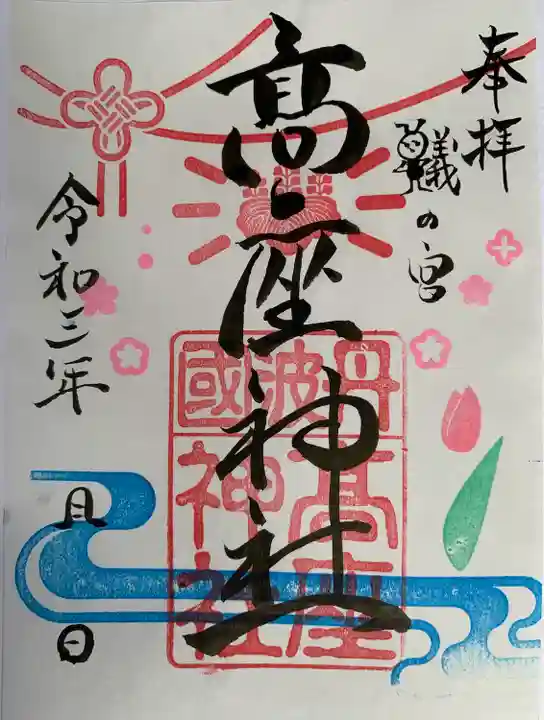 奉拝
蟻の宮
髙座神社
丹波國
高座
神社
令和三年
月 日